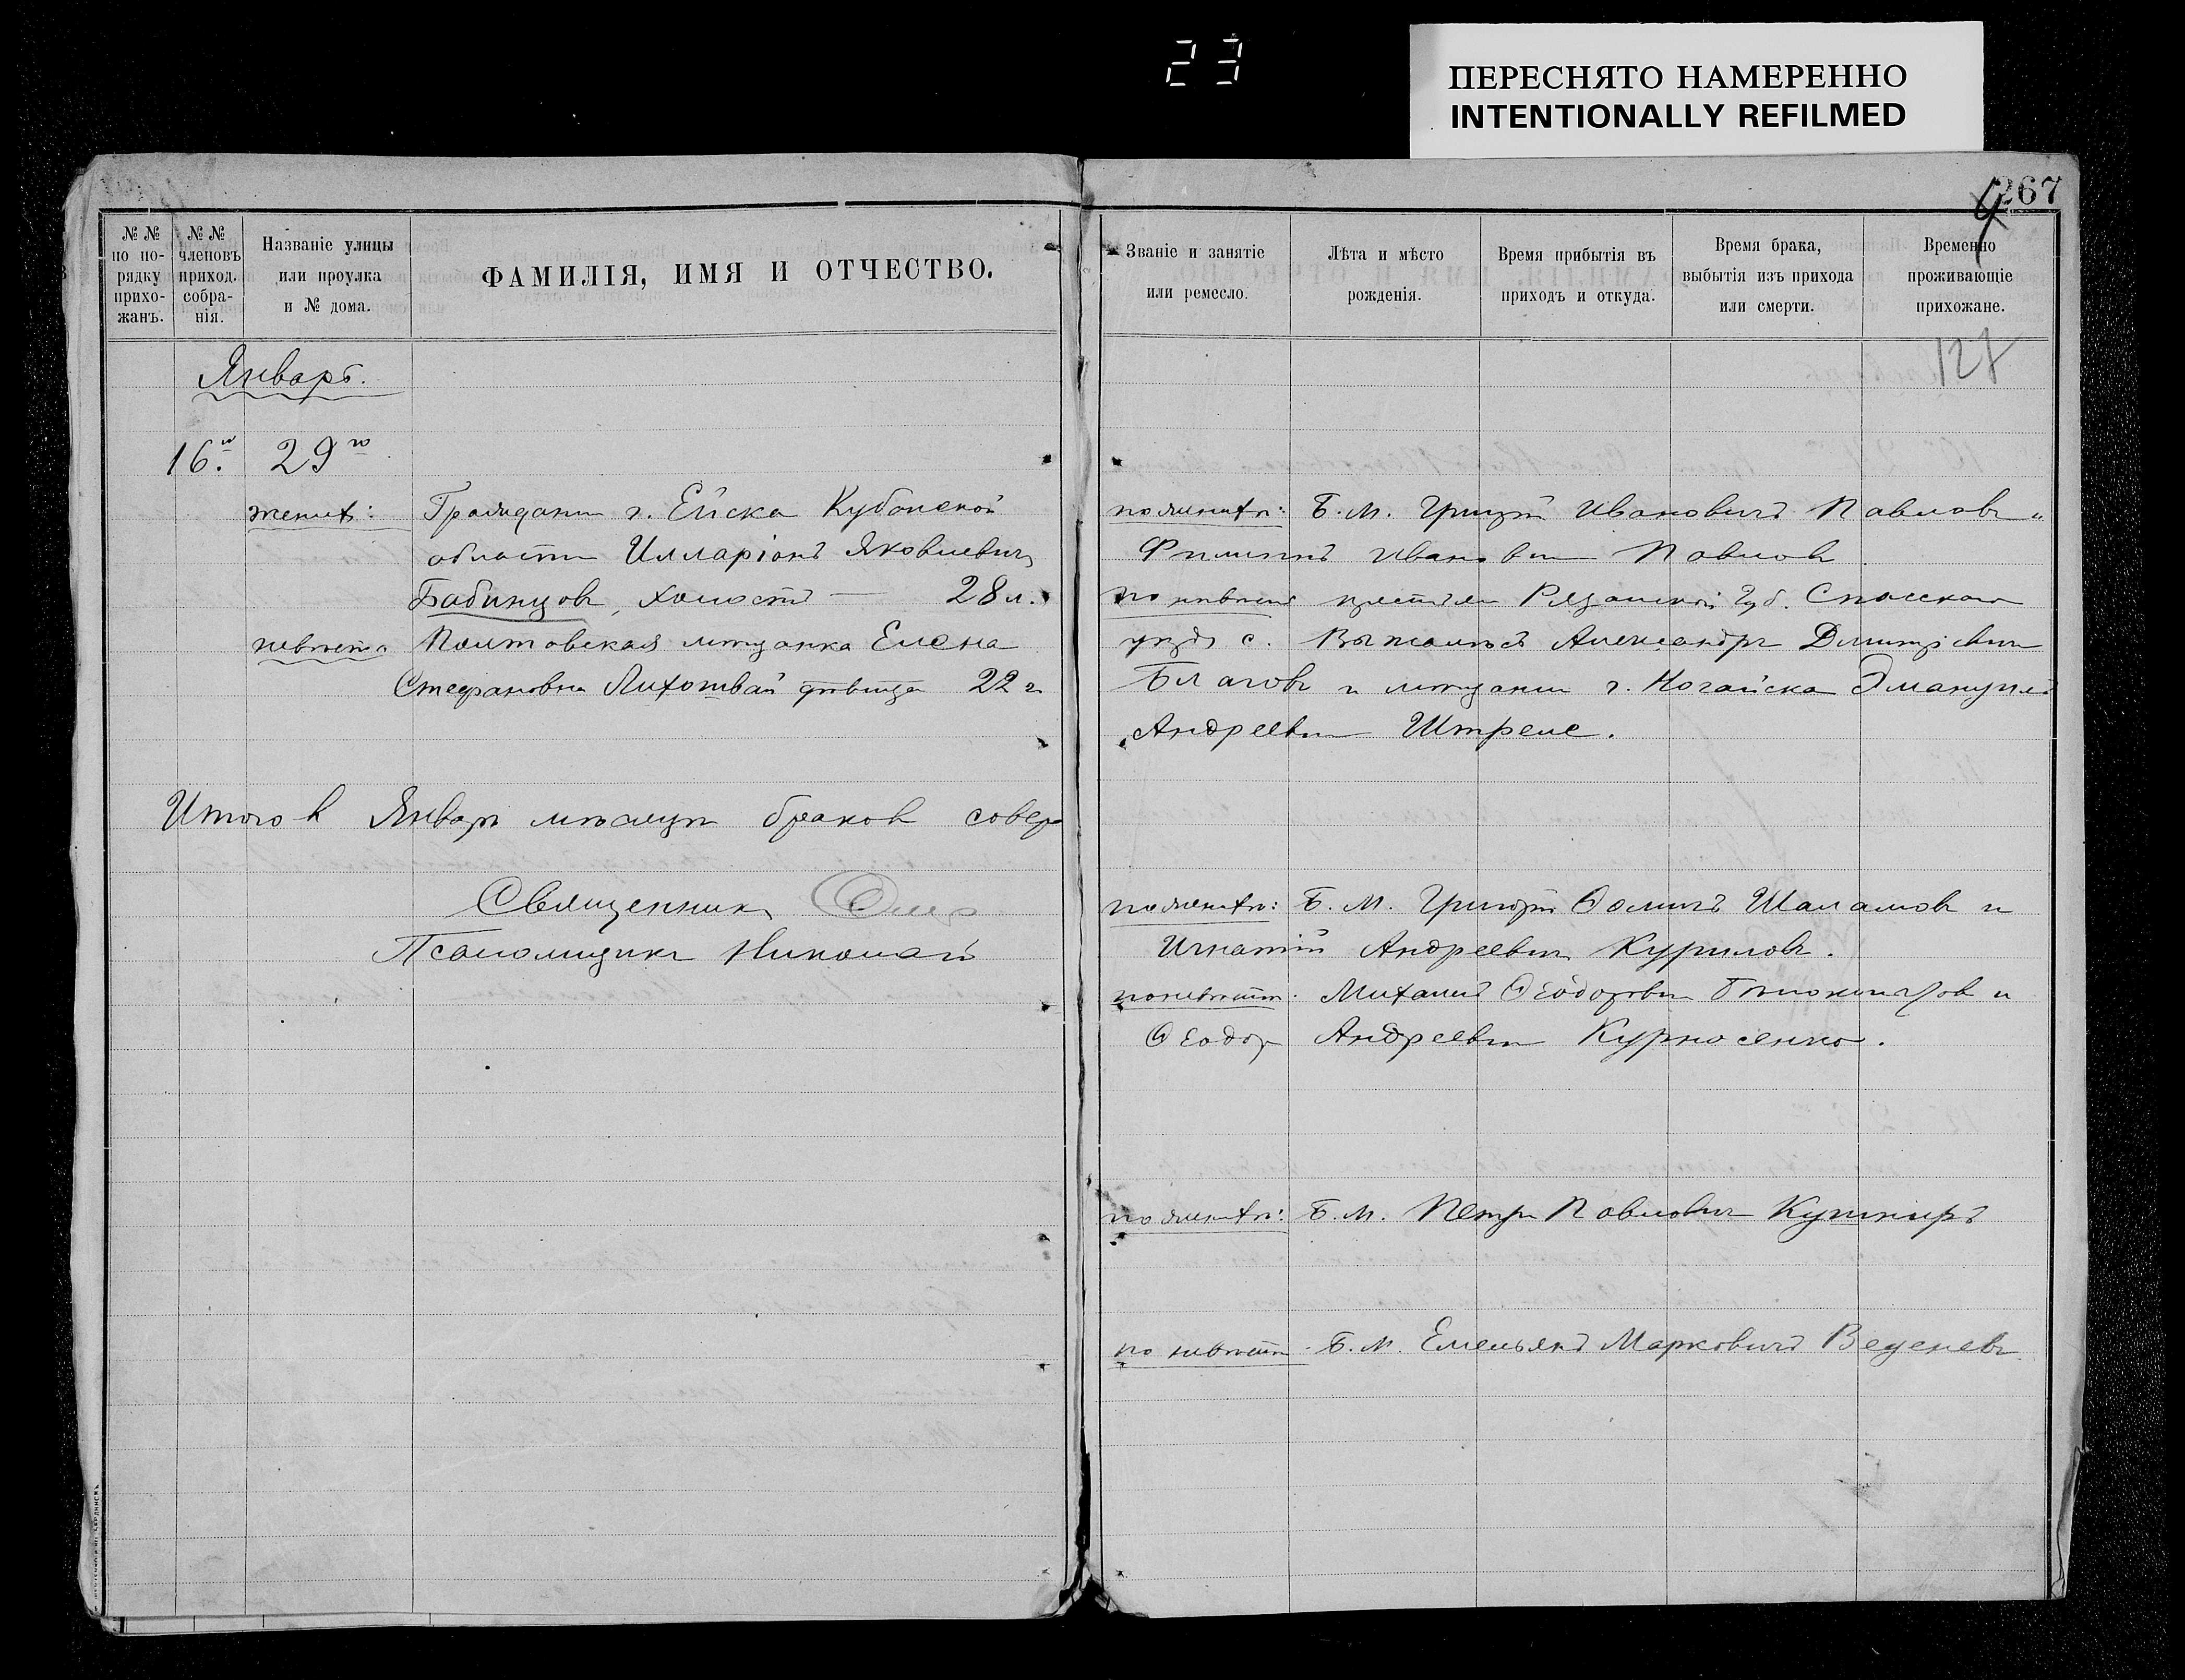 23
ПЕРЕСНЯТО НАМЕРЕННО
INTENTIONALLY REFILMED
267
№ № по по-рядку прихо-жанъ.
№ № членовъ приход. собра-нія.
Названіе улицы или проулка и № дома.
ФАМИЛІЯ, ИМЯ И ОТЧЕСТВО.
Январь.
16.й 29го
женихъ: Гражданинъ г. Ейска Кубанской
области Илларіонъ Яковлевичъ
Бабинцовъ, холостъ — 28 л.
невѣста Полтовская мѣщанка Елена
Стефановна Лихотвай дѣвица 22 г.
Итого въ Январѣ мѣсяцѣ браковъ совер
Священникъ
Псаломщикъ Николай
Званіе и занятіе или ремесло.
Лѣта и мѣсто рожденія.
Время прибытія въ приходъ и откуда.
Время брака, выбытія изъ прихода или смерти.
Временно проживающіе прихожане.
127
по женихѣ: Б. М. Григорій Ивановичъ Павловъ и
Филиппъ Ивановичъ Павловъ
по невѣстѣ крестьян Рязанской Губ. Спасскаго
уѣзда с. Александръ Дмитріевичъ
Благовъ и мѣщанинъ г. Ногайска Эмануилъ
Андреевичъ Штреле.
по женихѣ: Б. М. Григорій Ѳомичъ Шаламовъ и
Игнатій Андреевичъ Куриловъ.
по невѣстѣ. Михаилъ Ѳеодоровичъ и
Ѳеодоръ Андреевичъ Курносенко.
по женихѣ: Б. М. Петръ Павловичъ Кушниръ
по невѣстѣ. Б. М. Емельянъ Марковичъ Веденевъ